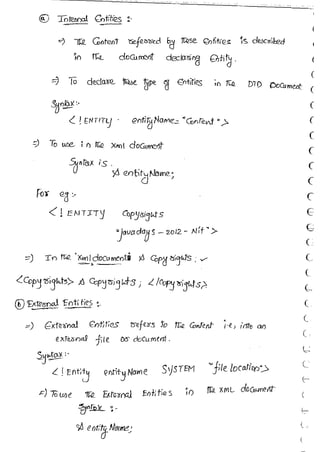 ⓐ Internal Entities :-
=> The Content refeared by these Entities is described
in the document declaring Entity.
=> To declare these type of Entities in the DTD Document
Syntax:-
<! ENTITY entityName "Content">
=> To use in the xml document
Syntax is
& entityName;
For eg:-
<! ENTITY Copyrights
"javadays - 2012 - Nit">
=> In the Xml document & Copyrights; ✓
<Copyrights> & Copyrights; </Copyrights>
ⓑ External Entities :-
=> External Entities refers to the Content i.e, into an
external file or document.
Syntax:-
<! Entity entityName SYSTEM "file location">
=> To use the External Entities in the XML document
Syntax :-
& entityName;